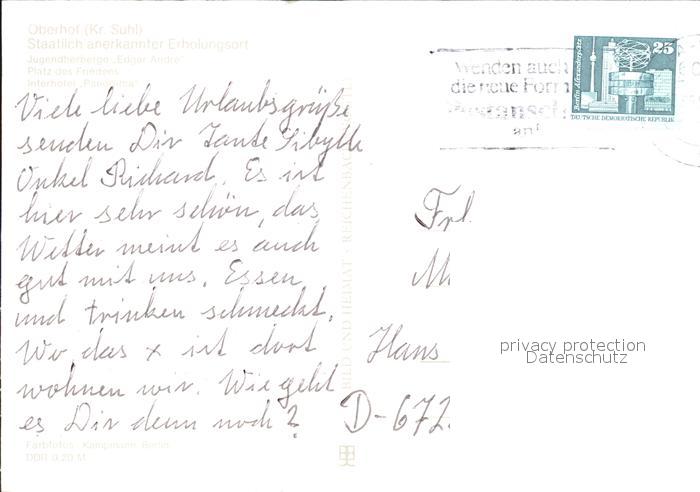 Oberhof (Kr. Suhl)
Staatlich anerkannter Erholungsort
Jugendherberge „Edgar André"
Platz des Friedens
Interhotel „Panorama"
Viele liebe Urlaubsgrüße
senden Dir Tante Sibylle
Onkel Richard. Es ist
hier sehr schön, das
Wetter meint es auch
gut mit uns. Essen
und trinken schmeckt.
Wo das x ist dort
wohnen wir. Wie geht
es Dir denn noch?
Farbfotos: Kampmann, Berlin
DDR 0,20 M
BILD UND HEIMAT · REICHENBACH
Wenden auch
die neue Form
Postansch
an!
25
Berlin, Alexanderplatz
DEUTSCHE DEMOKRATISCHE REPUBLIK
Frl.
M
Hans
D-672
privacy protection
Datenschutz